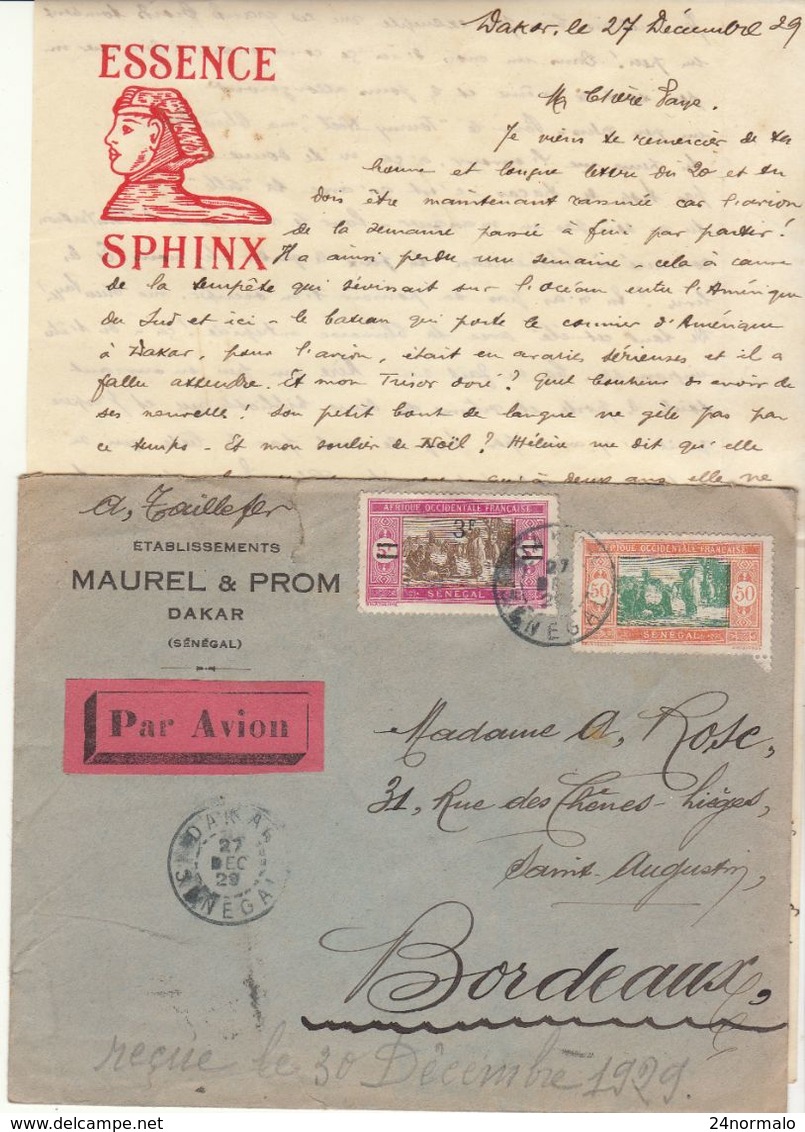 Dakar, le 27 Décembre 29
ESSENCE
SPHINX
Ma Chère
Je viens te remercier de ta
bonne et longue lettre du 20 et tu
dois être maintenant rassurée car l'avion
de la semaine passée à fini par partir!
Il a ainsi perdu une semaine - cela à cause
de la tempête qui sévissait sur l'océan entre l'Amérique
du Sud et ici - le bateau qui porte le courrier d'Amérique
à Dakar, pour l'avion, était en avaries sérieuses et il a
fallu attendre. Et mon Trésor doré? Quel bonheur d'avoir de
ses nouvelles! Son petit bout de langue ne gèle pas par
ce temps - Et mon soulier de Noël? Hélène me dit qu'elle
qui à deux ans elle ne
A. Taillefer
ETABLISSEMENTS
MAUREL & PROM
DAKAR
(SÉNÉGAL)
Par Avion
AFRIQUE OCCIDENTALE FRANÇAISE
3F
SENEGAL
AFRIQUE OCCIDENTALE FRANÇAISE
50 50
SENEGAL
27
DEC
29
SENEGAL
DAKAR
27
DEC
29
SENEGAL
Madame A. Rose,
31, Rue des Chênes-Lièges,
Saint-Augustin,
Bordeaux,
reçue le 30 Décembre 1929.
24normalo